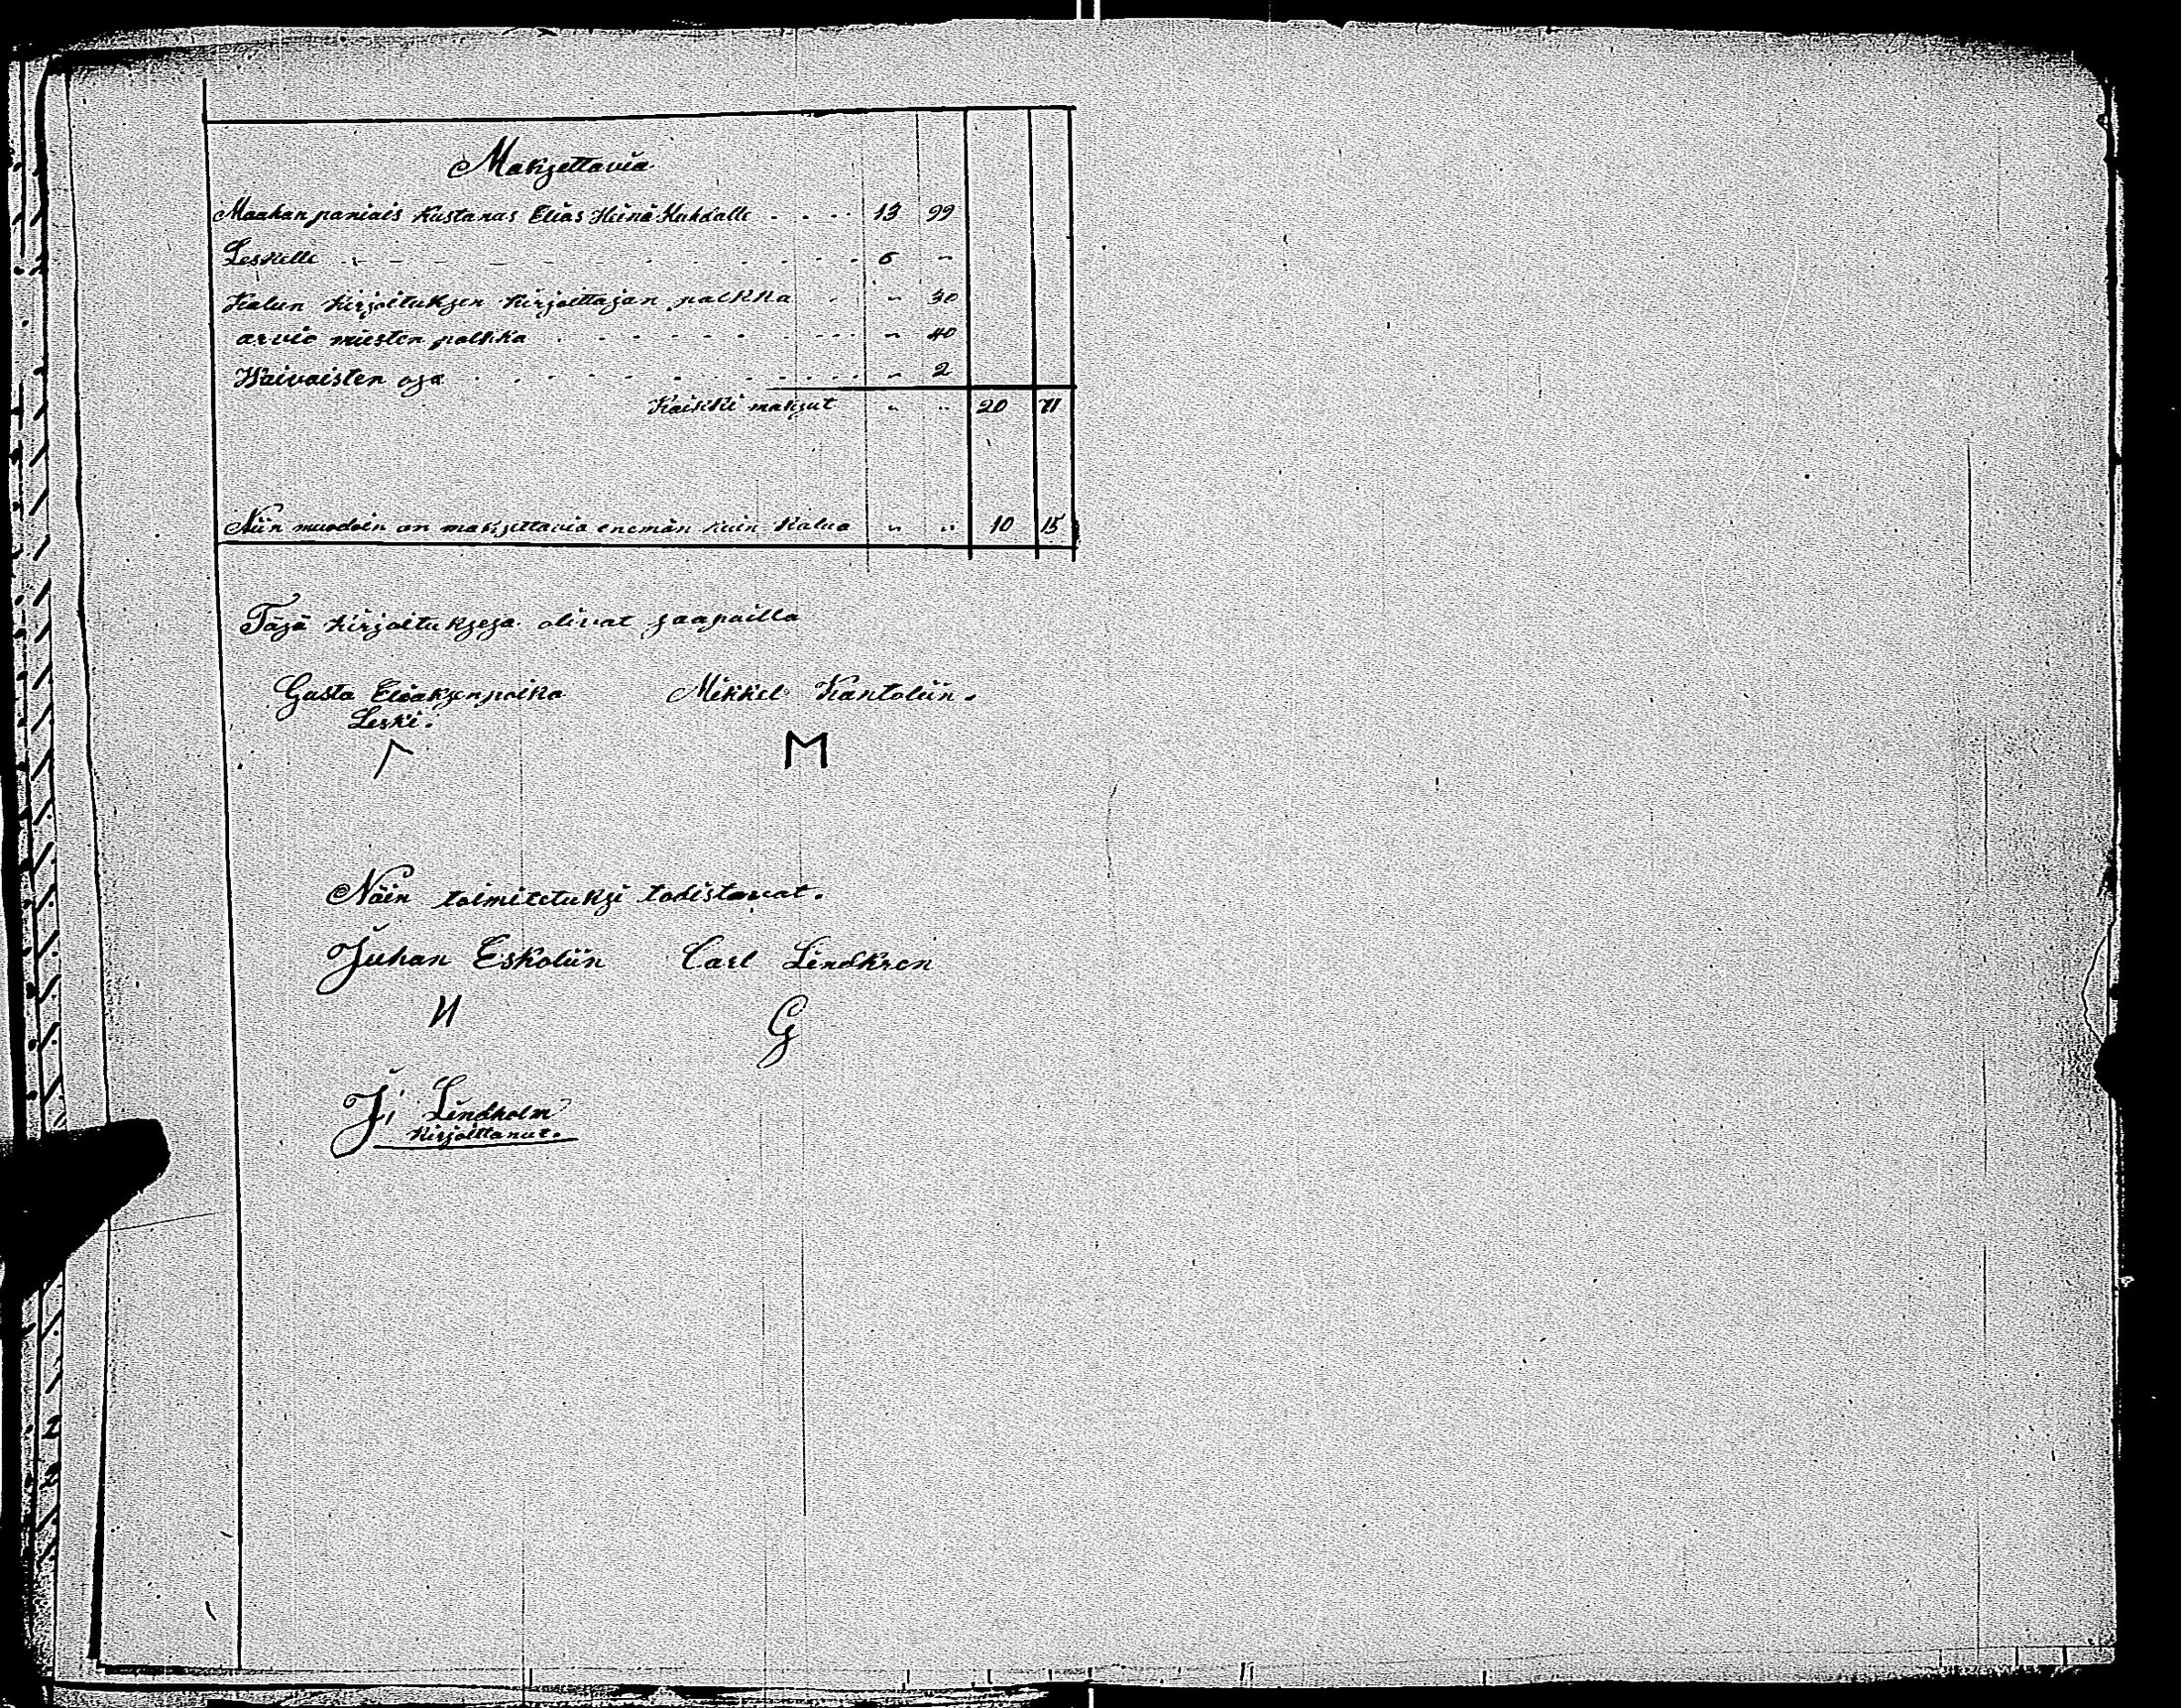 Makzettavia
Maahan paniais kustanus Elias Heinä Huhdalle - - - - 13 99
Leskelle - - - - - - - - - - - - - 6 "
Kalun kirjoituksen kirjoittajan palkka - " 30
arvio miesten palkka - - - - - - - - - " 40
Waivaisten osa - - - - - - - - - - " 2
Kaikki maksut " " 20 71
Niin muodoin on maksettavia enemän kuin kalua " " 10 15
Täsä kirjoituksesa olivat saapuilla
Gusta Eliaksenpoika Mikkel Kantoliin.
Leski.
M
Näin toimitetuksi todistavat.
Juhan Eskoliin Carl Lindkren
И G
J; Lindholm
Kirjoittanut.